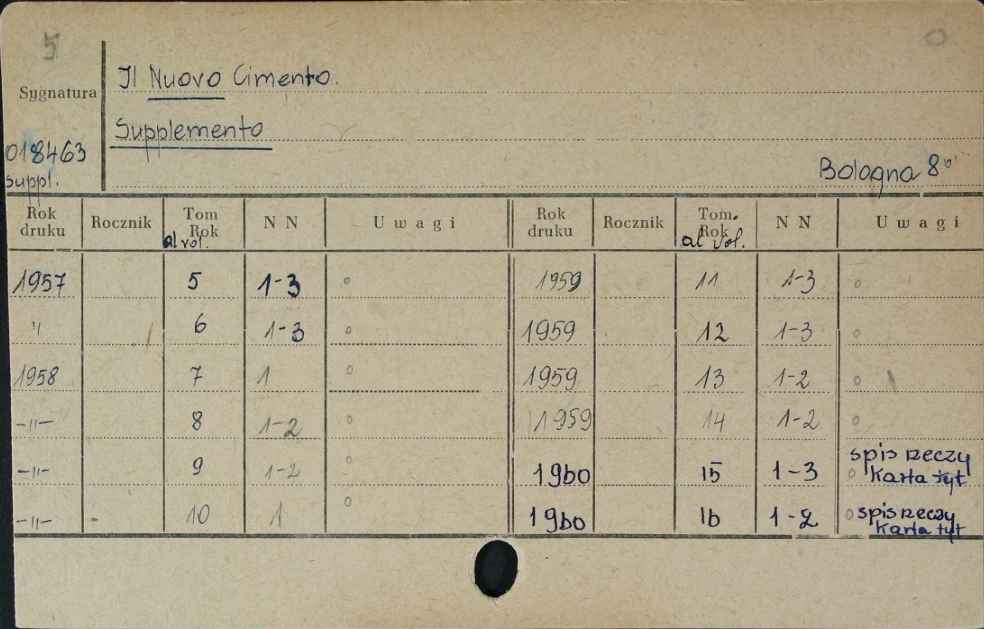 5
Sygnatura
Il Nuovo Cimento.
Supplemento
018463
suppl.
Bologna 8°
Rok druku Rocznik Tom Rok al vol. N N Uwagi Rok druku Rocznik Tom. Rok al vol. N N Uwagi
1957 5 1-3 ° 1959 11 1-3 °
" 6 1-3 ° 1959 12 1-3 °
1958 7 1 ° 1959 13 1-2 °
-"- 8 1-2 ° 1959 14 1-2 °
-"- 9 1-2 ° 1960 15 1-3 ° spis rzeczy Karta tyt
-"- 10 1 ° 1960 16 1-2 ° spis rzeczy Karta tyt